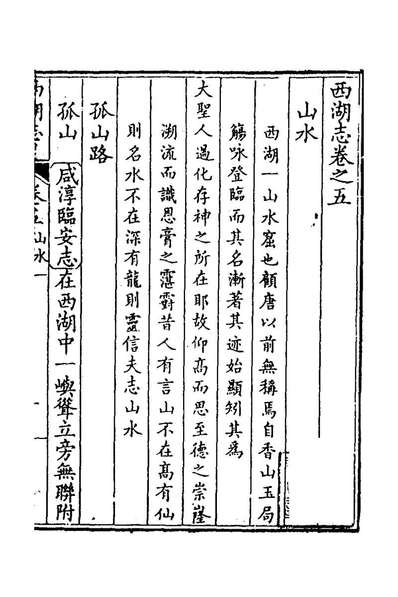 西湖志卷之五
山水
西湖一山水窟也顧唐以前無稱焉自香山玉局
觴咏登臨而其名漸著其迹始顯矧其爲
大聖人過化存神之所在耶故仰高而思至德之崇隆
溯流而識恩膏之霑霨昔人有言山不在高有仙
則名水不在深有龍則靈信夫志山水
孤山路
孤山 咸淳臨安志在西湖中一嶼聳立旁無聯附
西湖志 卷之五 山水 一